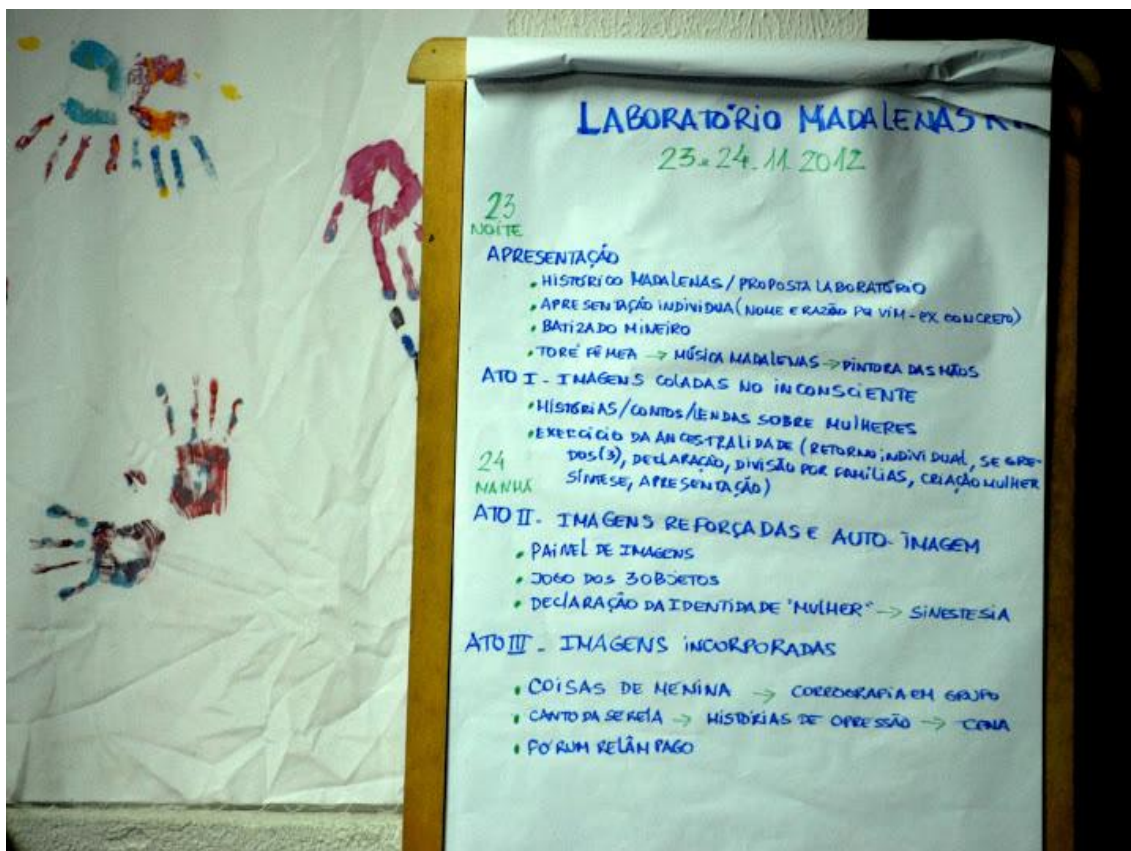 LABORATÓRIO MADALENAS
23 e 24.11.2012
23
NOITE
APRESENTAÇÃO
• HISTÓRICO MADALENAS / PROPOSTA LABORATÓRIO
• APRESENTAÇÃO INDIVIDUA (NOME E RAZÃO PQ VIM - EX CONCRETO)
• BATIZADO MINEIRO
• TORÉ FÊMEA → MÚSICA MADALENAS → PINTURA DAS MÃOS
ATO I - IMAGENS COLADAS NO INCONSCIENTE
• HISTÓRIAS/CONTOS/LENDAS SOBRE MULHERES
• EXERCÍCIO DA ANCESTRALIDADE (RETORNO INDIVIDUAL, SEGRE-
DOS(3), DECLARAÇÃO, DIVISÃO POR FAMÍLIAS, CRIAÇÃO MULHER
SÍNTESE, APRESENTAÇÃO)
24
MANHÃ
ATO II - IMAGENS REFORÇADAS E AUTO-IMAGEM
• PAINEL DE IMAGENS
• JOGO DOS 3 OBJETOS
• DECLARAÇÃO DA IDENTIDADE "MULHER" → SINESTESIA
ATO III - IMAGENS INCORPORADAS
• COISAS DE MENINA → COREOGRAFIA EM GRUPO
• CANTO DA SEREIA → HISTÓRIAS DE OPRESSÃO → CENA
• FÓRUM RELÂMPAGO